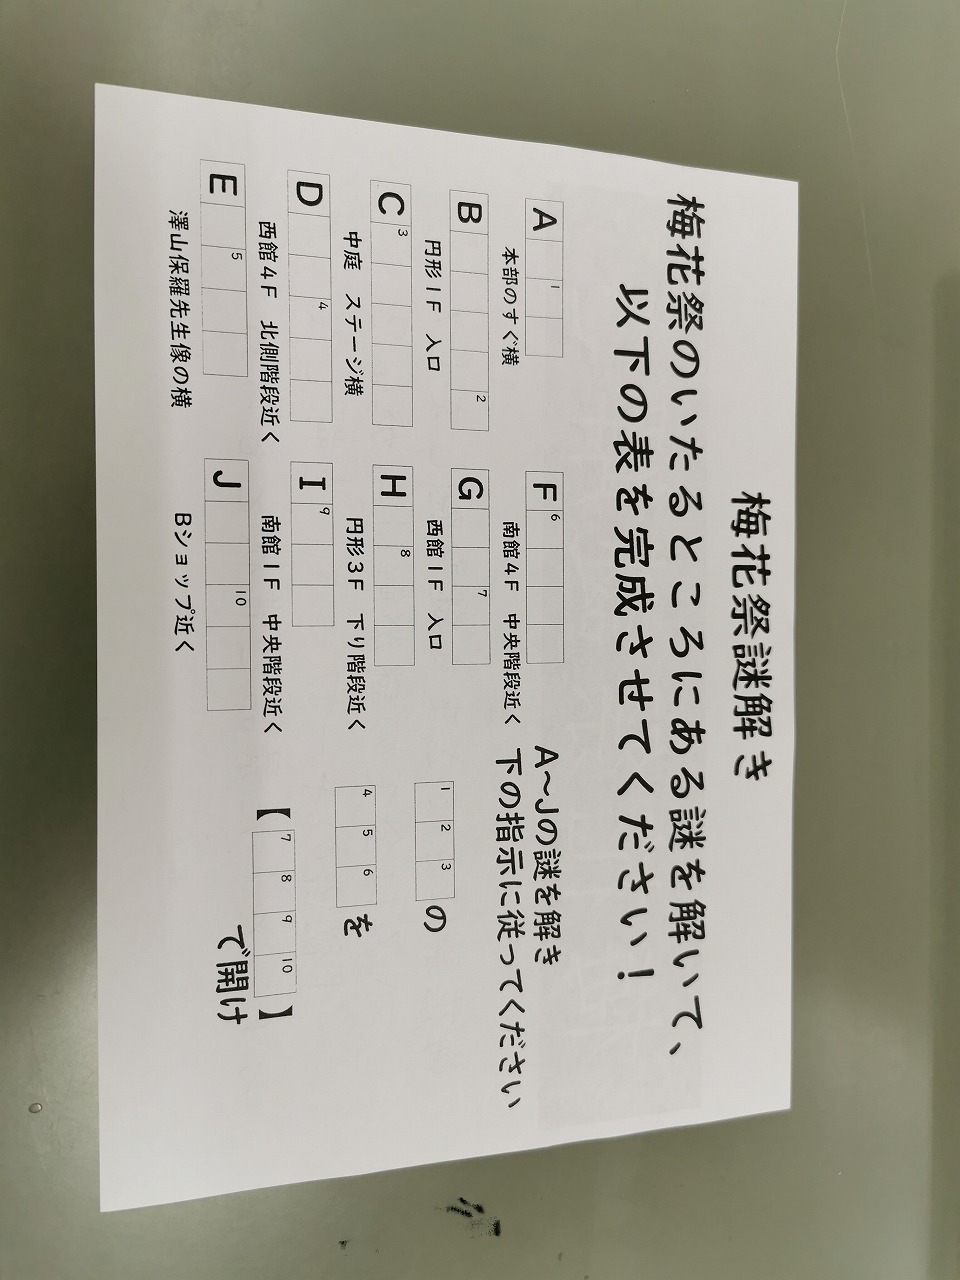 梅花祭謎解き
梅花祭のいたるところにある謎を解いて、
以下の表を完成させてください!
A 1
本部のすぐ横
B 2
円形1F 入口
C 3
中庭 ステージ横
D 4
西館4F 北側階段近く
E 5
澤山保羅先生像の横
F 6
南館4F 中央階段近く
G 7
西館1F 入口
H 8
円形3F 下り階段近く
I 9
南館1F 中央階段近く
J 10
Bショップ近く
A~Jの謎を解き
下の指示に従ってください
1 2 3 の
4 5 6 を
【7 8 9 10】
で開け